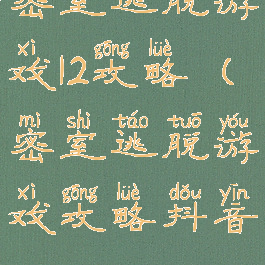 密室逃脱游
xì gōng lüè
戏12攻略（
mì shì táo tuō yóu
密室逃脱游
xì gōng lüè dǒu yīn
戏攻略抖音